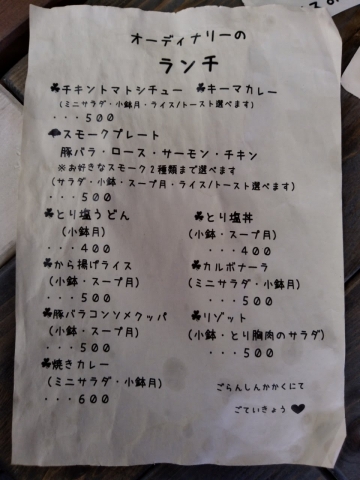 オーディナリーの
ランチ
♣チキントマトシチュー ♣キーマカレー
(ミニサラダ・小鉢月・ライス/トースト選べます)
・・・500
スモークプレート
豚バラ・ロース・サーモン・チキン
※お好きなスモーク2種類まで選べます
(サラダ・小鉢・スープ月・ライス/トースト選べます)
・・・500
♣とり塩うどん
(小鉢月)
・・・400
♣とり塩丼
(小鉢・スープ月)
・・・400
♣から揚げライス
(小鉢・スープ月)
・・・500
♣カルボナーラ
(ミニサラダ・小鉢月)
・・・500
♣豚バラコンソメクッパ
(小鉢・スープ月)
・・・500
♣リゾット
(小鉢・とり胸肉のサラダ)
・・・500
♣焼きカレー
(ミニサラダ・小鉢月)
・・・600
ごらんしんかかくにて
ごていきょう♥